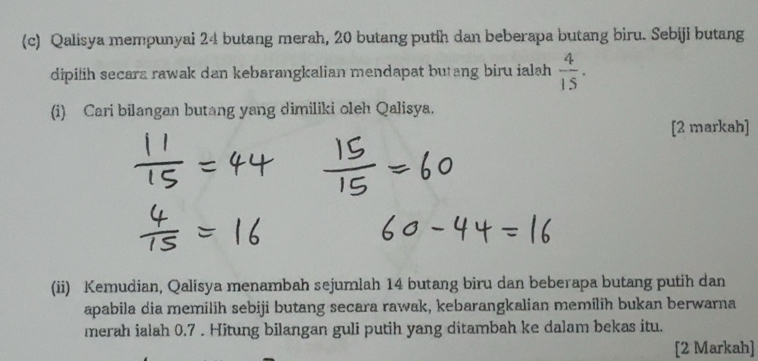 (c) Qalisya mempunyai 24 butang merah, 20 butang putih dan beberapa butang biru. Sebiji butang
dipilih secara rawak dan kebarangkalian mendapat butang biru ialah 4/15.
(i) Cari bilangan butang yang dimiliki oleh Qalisya.
[2 markah]
11/15 = 44 15/15 = 60
4/15 = 16 60 - 44 = 16
(ii) Kemudian, Qalisya menambah sejumlah 14 butang biru dan beberapa butang putih dan
apabila dia memilih sebiji butang secara rawak, kebarangkalian memilih bukan berwarna
merah ialah 0.7 . Hitung bilangan guli putih yang ditambah ke dalam bekas itu.
[2 Markah]